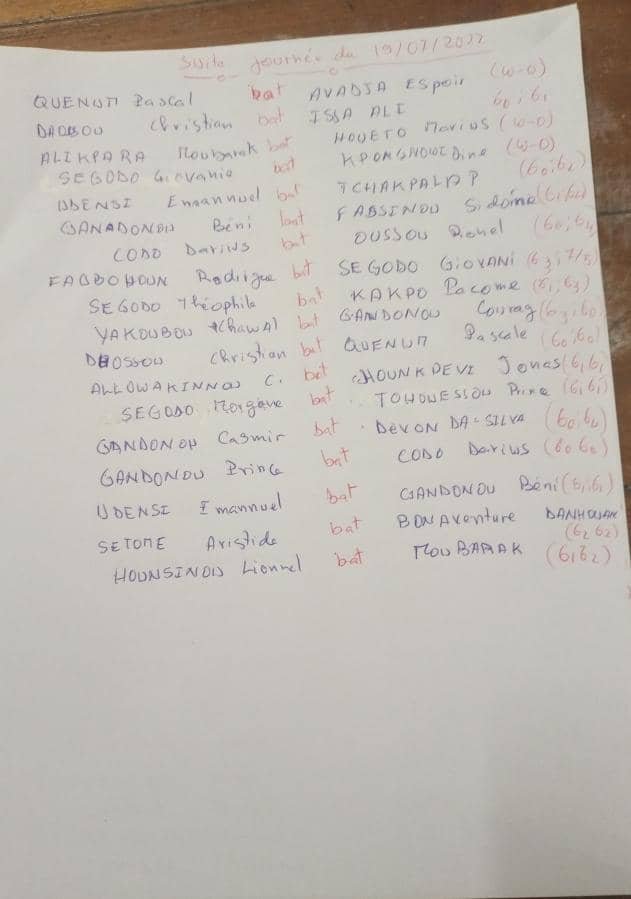 Suite journée du 19/07/2022
QUENUM Pascal bat AVADJA Espoir (w-0)
Christian bat ISSA ALI 60; 61
ALIKPARA Moubarak bat HOUETO Marius (w-0)
SEGODO Giovanie bat KPONGNOWI Dine (w-0)
UDENSI Emannuel bat TCHAKPALA P (60; 62)
GANADONOU Béni bat FABSINOU Sidoine (61, 62)
CODO Darius bat OUSSOU Dionel (60; 64)
FAGBOHOUN Rodrigue bat SEGODO GiOVANi (63; 7/5)
SEGODO Théophile bat KAKPO Pacome (61; 63)
YAKOUBOU bat GANDONOU Courag (63; 60)
DHOSSOU Christian bat QUENUM Pascale (60; 60)
ALLOWAKINNOU C. bat HOUNKPEVI Jonas (61, 61
SEGODO Morgane bat TOHOUESSOU (61, 61)
GANDONOU Casmir bat DEVON DA-SILVA (60; 62)
GANDONOU Prince bat CODO Darius (60 60)
UDENSI Emannuel bat GANDONOU Béni (61; 61)
SETOME Aristide bat BONAventure DANHOUAN
(62 62)
HOUNSINOU Lionnel bat MOUBARAK (61 62)